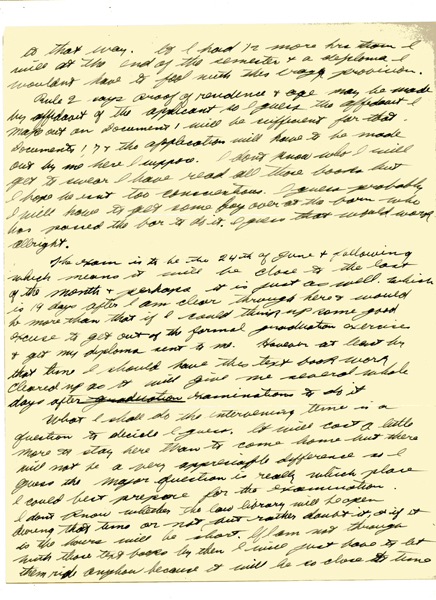 to that way. If I had 12 more hrs than I
will at the end of the semester & a diploma I
wouldn't have to fool with this provision.
Rule 2 says proof of residence & age may be made
by affidavit of the applicant so I guess the affidavit I
make out on Document 1 will be sufficient for that.
Documents 1, 7 & the application will have to be made
out by me here I suppose. I don't know who I will
get to swear I have read all those books but
I hope he isn't too conscientious. I guess probably
I will have to get some boy over at the barn who
has passed the bar to do it. I guess that would work
allright.
The exam is to be the 24th of June & following
which means it will be close to the last
of the month & perhaps it is just as well. which
is 19 days after I am clear through here & would
be more than that if I could think up some good
excuse to get out of the formal graduation exercises
& get my diploma sent to me. However at least by
that time I should have this text book work
cleared up as it will give me several whole
days after graduation examinations to do it
What I shall do the intervening time is a
question to decide I guess. It will cost a little
more to stay here than to come home but there
will not be a very appreciable difference so I
guess the major question is really which place
I could best prepare for the examination.
I don't know whether the law library will be open
during that time or not but rather doubt it, & if it
is the hours will be short. If I am not through
with those text books by then I will just have to let
them ride anyhow because it will be so close to time